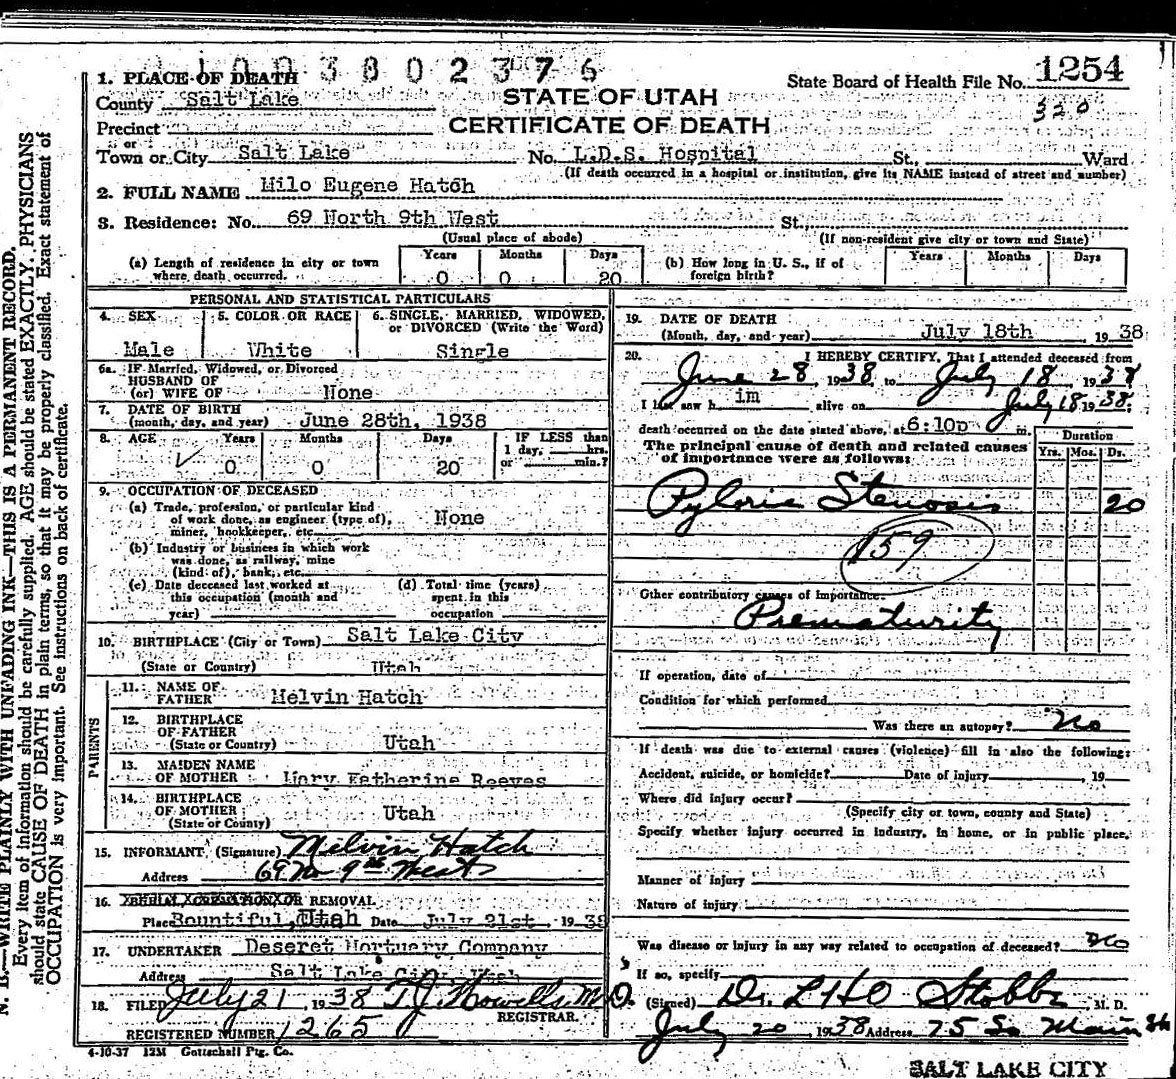 1003802376
1. PLACE OF DEATH
State Board of Health File No. 1254
County Salt Lake
STATE OF UTAH
320
Precinct
CERTIFICATE OF DEATH
or
Town or City Salt Lake No. L.D.S. Hospital St., Ward
(If death occurred in a hospital or institution, give its NAME instead of street and number)
2. FULL NAME Milo Eugene Hatch
3. Residence: No. 69 North 9th West St.
(Usual place of abode) (If non-resident give city or town and State)
(a) Length of residence in city or town where death occurred. Years 0 Months 0 Days 20
(b) How long in U. S., if of foreign birth? Years Months Days
PERSONAL AND STATISTICAL PARTICULARS
4. SEX Male
5. COLOR OR RACE White
6. SINGLE, MARRIED, WIDOWED, or DIVORCED (Write the Word) Single
6a. IF Married, Widowed, or Divorced
HUSBAND OF
(or) WIFE OF None
7. DATE OF BIRTH
(month, day, and year) June 28th, 1938
8. AGE Years 0 Months 0 Days 20 IF LESS than 1 day, hrs. or min.?
9. OCCUPATION OF DECEASED
(a) Trade, profession, or particular kind
of work done, as engineer (type of),
miner, bookkeeper, etc. None
(b) Industry or business in which work
was done, as railway, mine
(kind of), bank, etc.
(c) Date deceased last worked at
this occupation (month and
year)
(d) Total time (years)
spent in this
occupation
10. BIRTHPLACE (City or Town) Salt Lake City
(State or Country) Utah
PARENTS
11. NAME OF
FATHER Melvin Hatch
12. BIRTHPLACE
OF FATHER
(State or Country) Utah
13. MAIDEN NAME
OF MOTHER Mary Katherine Reeves
14. BIRTHPLACE
OF MOTHER
(State or Country) Utah
15. INFORMANT (Signature) Melvin Hatch
Address 69 No 9th West
16. BURIAL, CREMATION, OR REMOVAL
Place Bountiful, Utah Date July 21st, 1938
17. UNDERTAKER Deseret Mortuary Company
Address Salt Lake City, Utah
18. FILED July 21 1938 M.D.
REGISTRAR.
REGISTERED NUMBER 1265
19. DATE OF DEATH
(Month, day, and year) July 18th 1938
20. I HEREBY CERTIFY, That I attended deceased from
June 28, 1938 to July 18, 1938
I last saw h im alive on July 18 1938;
death occurred on the date stated above, at 6:10p m.
The principal cause of death and related causes
of importance were as follows:
Duration
Yrs. Mos. Ds.
Pyloric Stenosis 20
159
Other contributory causes of importance:
Prematurity
If operation, date of
Condition for which performed
Was there an autopsy? No
If death was due to external causes (violence) fill in also the following:
Accident, suicide, or homicide? Date of injury , 19
Where did injury occur?
(Specify city or town, county and State)
Specify whether injury occurred in industry, in home, or in public place.
Manner of injury
Nature of injury
Was disease or injury in any way related to occupation of deceased? No
If so, specify
(Signed) Dr. Stobbe, M. D.
July 20, 1938 Address 75 So Main St
4-10-37 12M Gottschall Ptg. Co.
SALT LAKE CITY
N. B.—WRITE PLAINLY WITH UNFADING INK—THIS IS A PERMANENT RECORD.
Every item of information should be carefully supplied. AGE should be stated EXACTLY. PHYSICIANS
should state CAUSE OF DEATH in plain terms, so that it may be properly classified. Exact statement of
OCCUPATION is very important. See instructions on back of certificate.